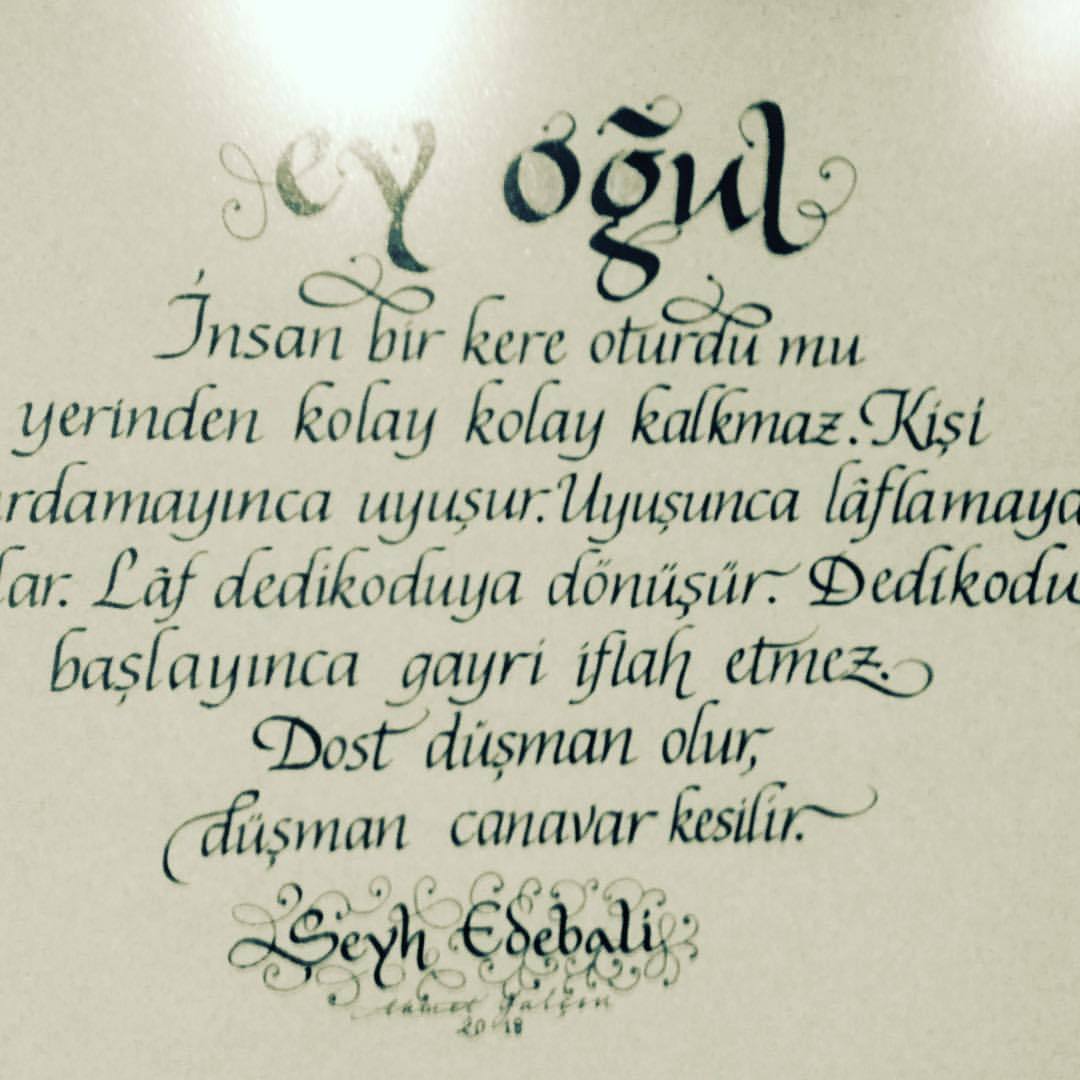 ey oğul
İnsan bir kere oturdu mu
yerinden kolay kolay kalkmaz. Kişi
rdamayınca uyuşur. Uyuşunca lâflamaya
lar. Lâf dedikoduya dönüşür. Dedikodu
başlayınca gayri iflah etmez.
Dost düşman olur,
düşman canavar kesilir.
Şeyh Edebali
2018